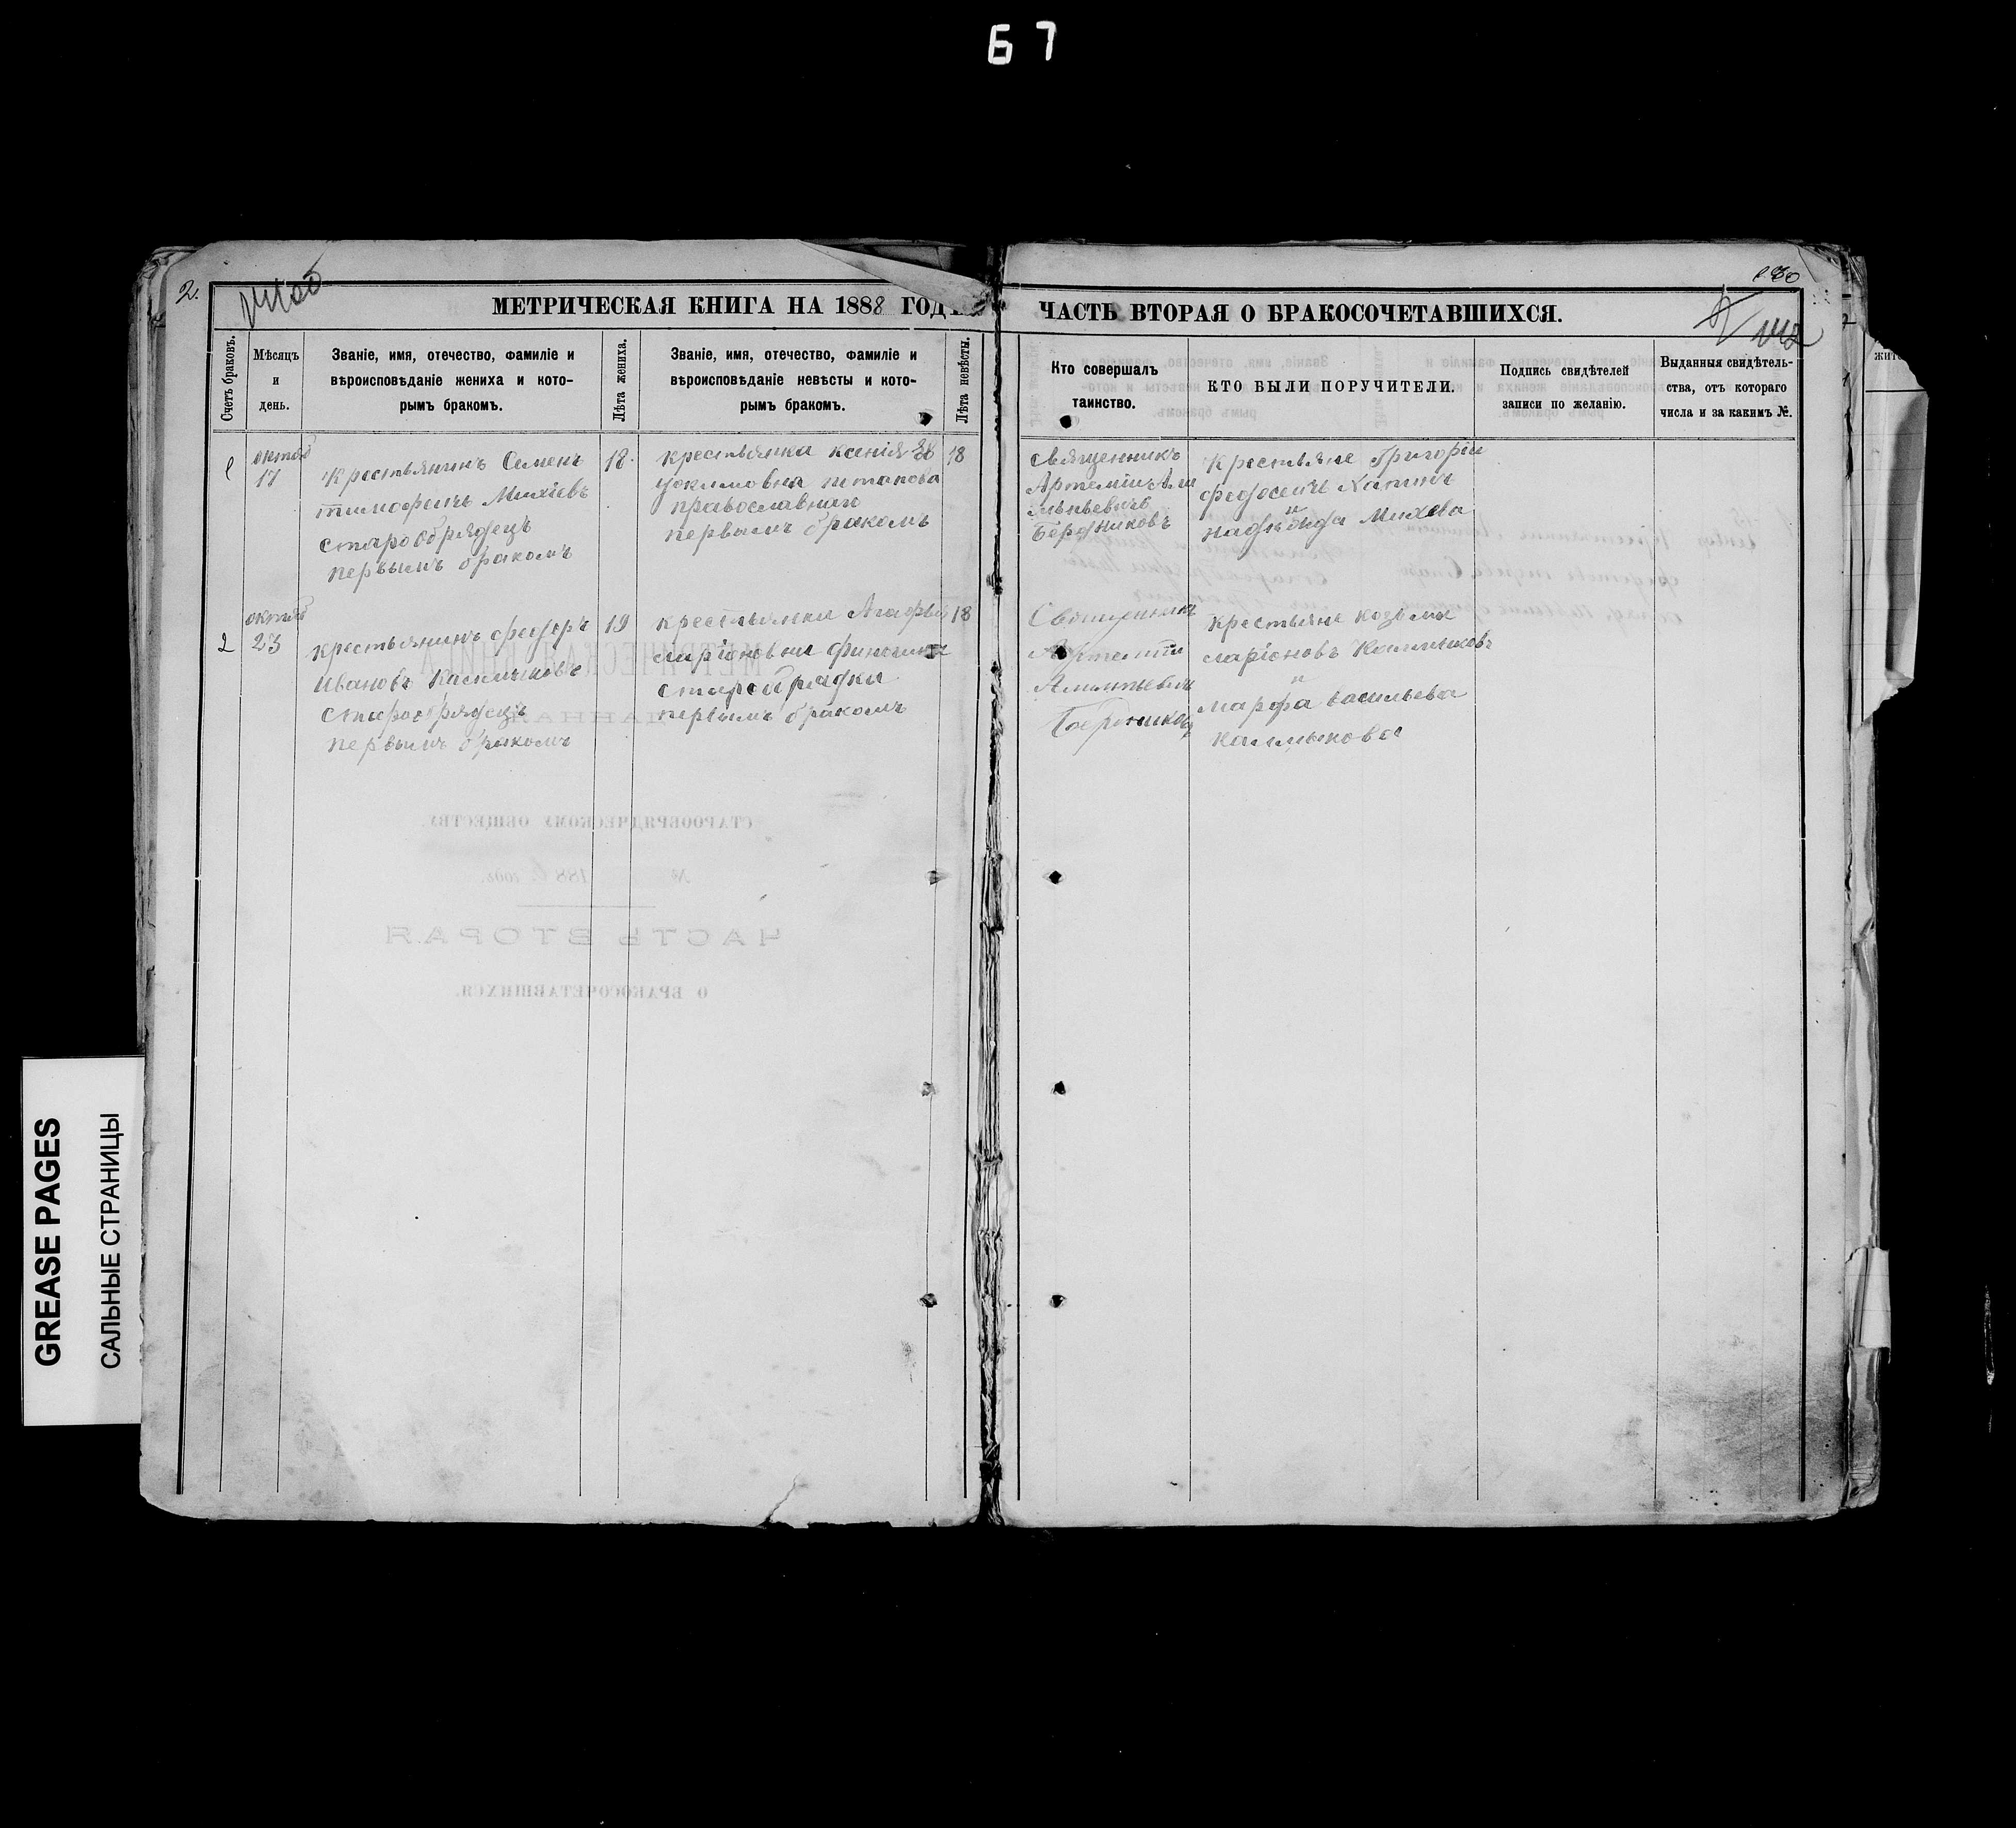 67
2.
МЕТРИЧЕСКАЯ КНИГА НА 1888 ГОДЪ
Счетъ браковъ.
Мѣсяцъ
и
день.
Званіе, имя, отечество, фамиліе и
вѣроисповѣданіе жениха и кото-
рымъ бракомъ.
Лѣта жениха.
Званіе, имя, отечество, фамиліе и
вѣроисповѣданіе невѣсты и кото-
рымъ бракомъ.
Лѣта невѣсты.
1
октяб
17
крестьянинъ Семенъ
тимофеичъ Михіевъ
старообрядецъ
первымъ бракомъ
18
крестьянка ксенія
потапова
православная
первымъ бракомъ
18
2
октяб
23
крестьянинъ федоръ
Ивановъ Калмыковъ
старообрядецъ
первымъ бракомъ
19
крестьянка Агафья
ларіоновна
старобрадка
первымъ бракомъ
18
ЧАСТЬ ВТОРАЯ О БРАКОСОЧЕТАВШИХСЯ.
142
Кто совершалъ
таинство.
КТО БЫЛИ ПОРУЧИТЕЛИ.
Подпись свидѣтелей
записи по желанію.
Выданныя свидѣтель-
ства, отъ котораго
числа и за какимъ №.
священникъ
Артемій
Бердниковъ
крестьяне Григорій
федосеичъ
и
Михева
Священникъ
Артемій
Бердниковъ
крестьяне козьма
ларіоновъ Калмыковъ
и
марфа васильева
калмыкова
GREASE PAGES
САЛЬНЫЕ СТРАНИЦЫ